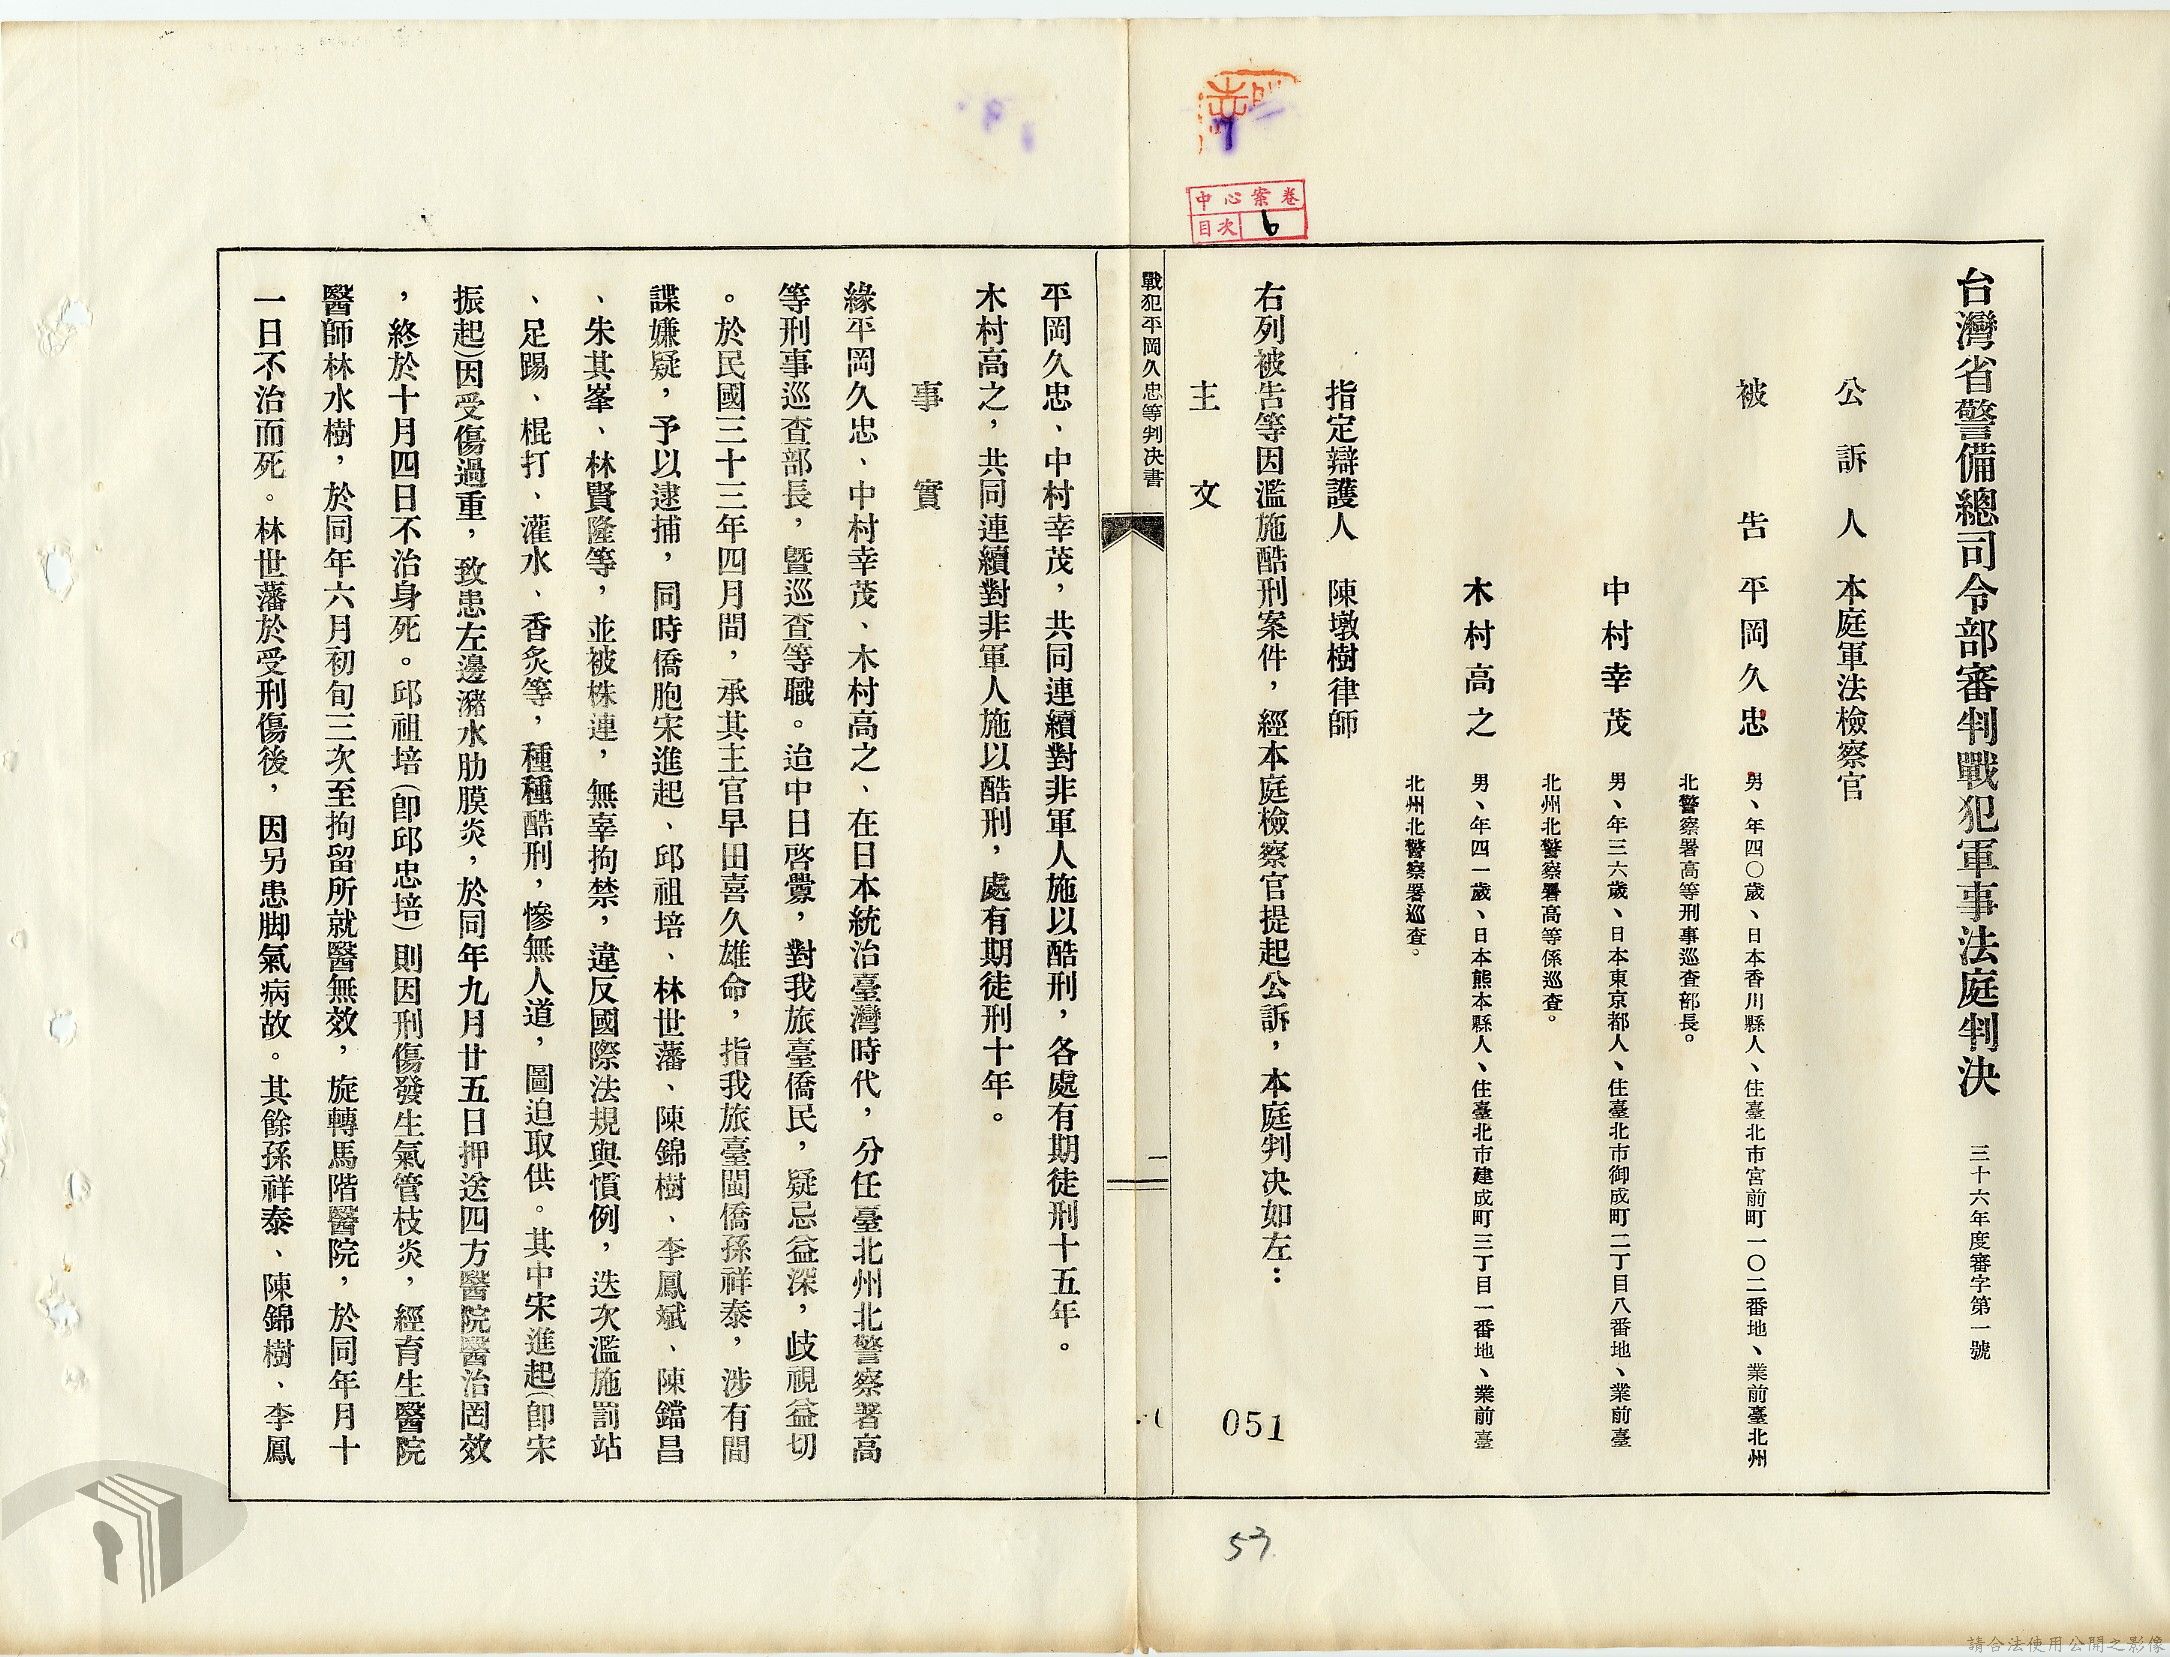 台灣省警備總司令部審判戰犯軍事法庭判決 三十六年度審字第一號
公訴人 本庭軍法檢察官
被告 平岡久忠 男、年四〇歲、日本香川縣人、住臺北市宮前町一〇二番地、業前臺北州
北警察署高等刑事巡查部長。
中村幸茂 男、年三六歲、日本東京都人、住臺北市御成町二丁目八番地、業前臺
北州北警察署高等係巡查。
木村高之 男、年四一歲、日本熊本縣人、住臺北市建成町三丁目一番地、業前臺
北州北警察署巡查。
指定辯護人 陳墩樹律師
右列被告等因濫施酷刑案件，經本庭檢察官提起公訴，本庭判決如左：
主文
戰犯平岡久忠等判決書 一
平岡久忠、中村幸茂，共同連續對非軍人施以酷刑，各處有期徒刑十五年。
木村高之，共同連續對非軍人施以酷刑，處有期徒刑十年。
事實
緣平岡久忠、中村幸茂、木村高之、在日本統治臺灣時代，分任臺北州北警察署高
等刑事巡查部長，暨巡查等職。迨中日啓釁，對我旅臺僑民，疑忌益深，歧視益切
。於民國三十三年四月間，承其主官早田喜久雄命，指我旅臺閩僑孫祥泰，涉有間
諜嫌疑，予以逮捕，同時僑胞宋進起、邱祖培、林世藩、陳錦樹、李鳳斌、陳鐺昌
、朱其峯、林賢隆等，並被株連，無辜拘禁，違反國際法規與慣例，迭次濫施罰站
、足踢、棍打、灌水、香炙等，種種酷刑，慘無人道，圖迫取供。其中宋進起(卽宋
振起)因受傷過重，致患左邊瀦水肋膜炎，於同年九月廿五日押送四方醫院醫治罔效
，終於十月四日不治身死。邱祖培(卽邱忠培)則因刑傷發生氣管枝炎，經育生醫院
醫師林水樹，於同年六月初旬三次至拘留所就醫無效，旋轉馬階醫院，於同年月十
一日不治而死。林世藩於受刑傷後，因另患脚氣病故。其餘孫祥泰、陳錦樹、李鳳
中心案卷
目次 6
051
53
請合法使用公開之影像